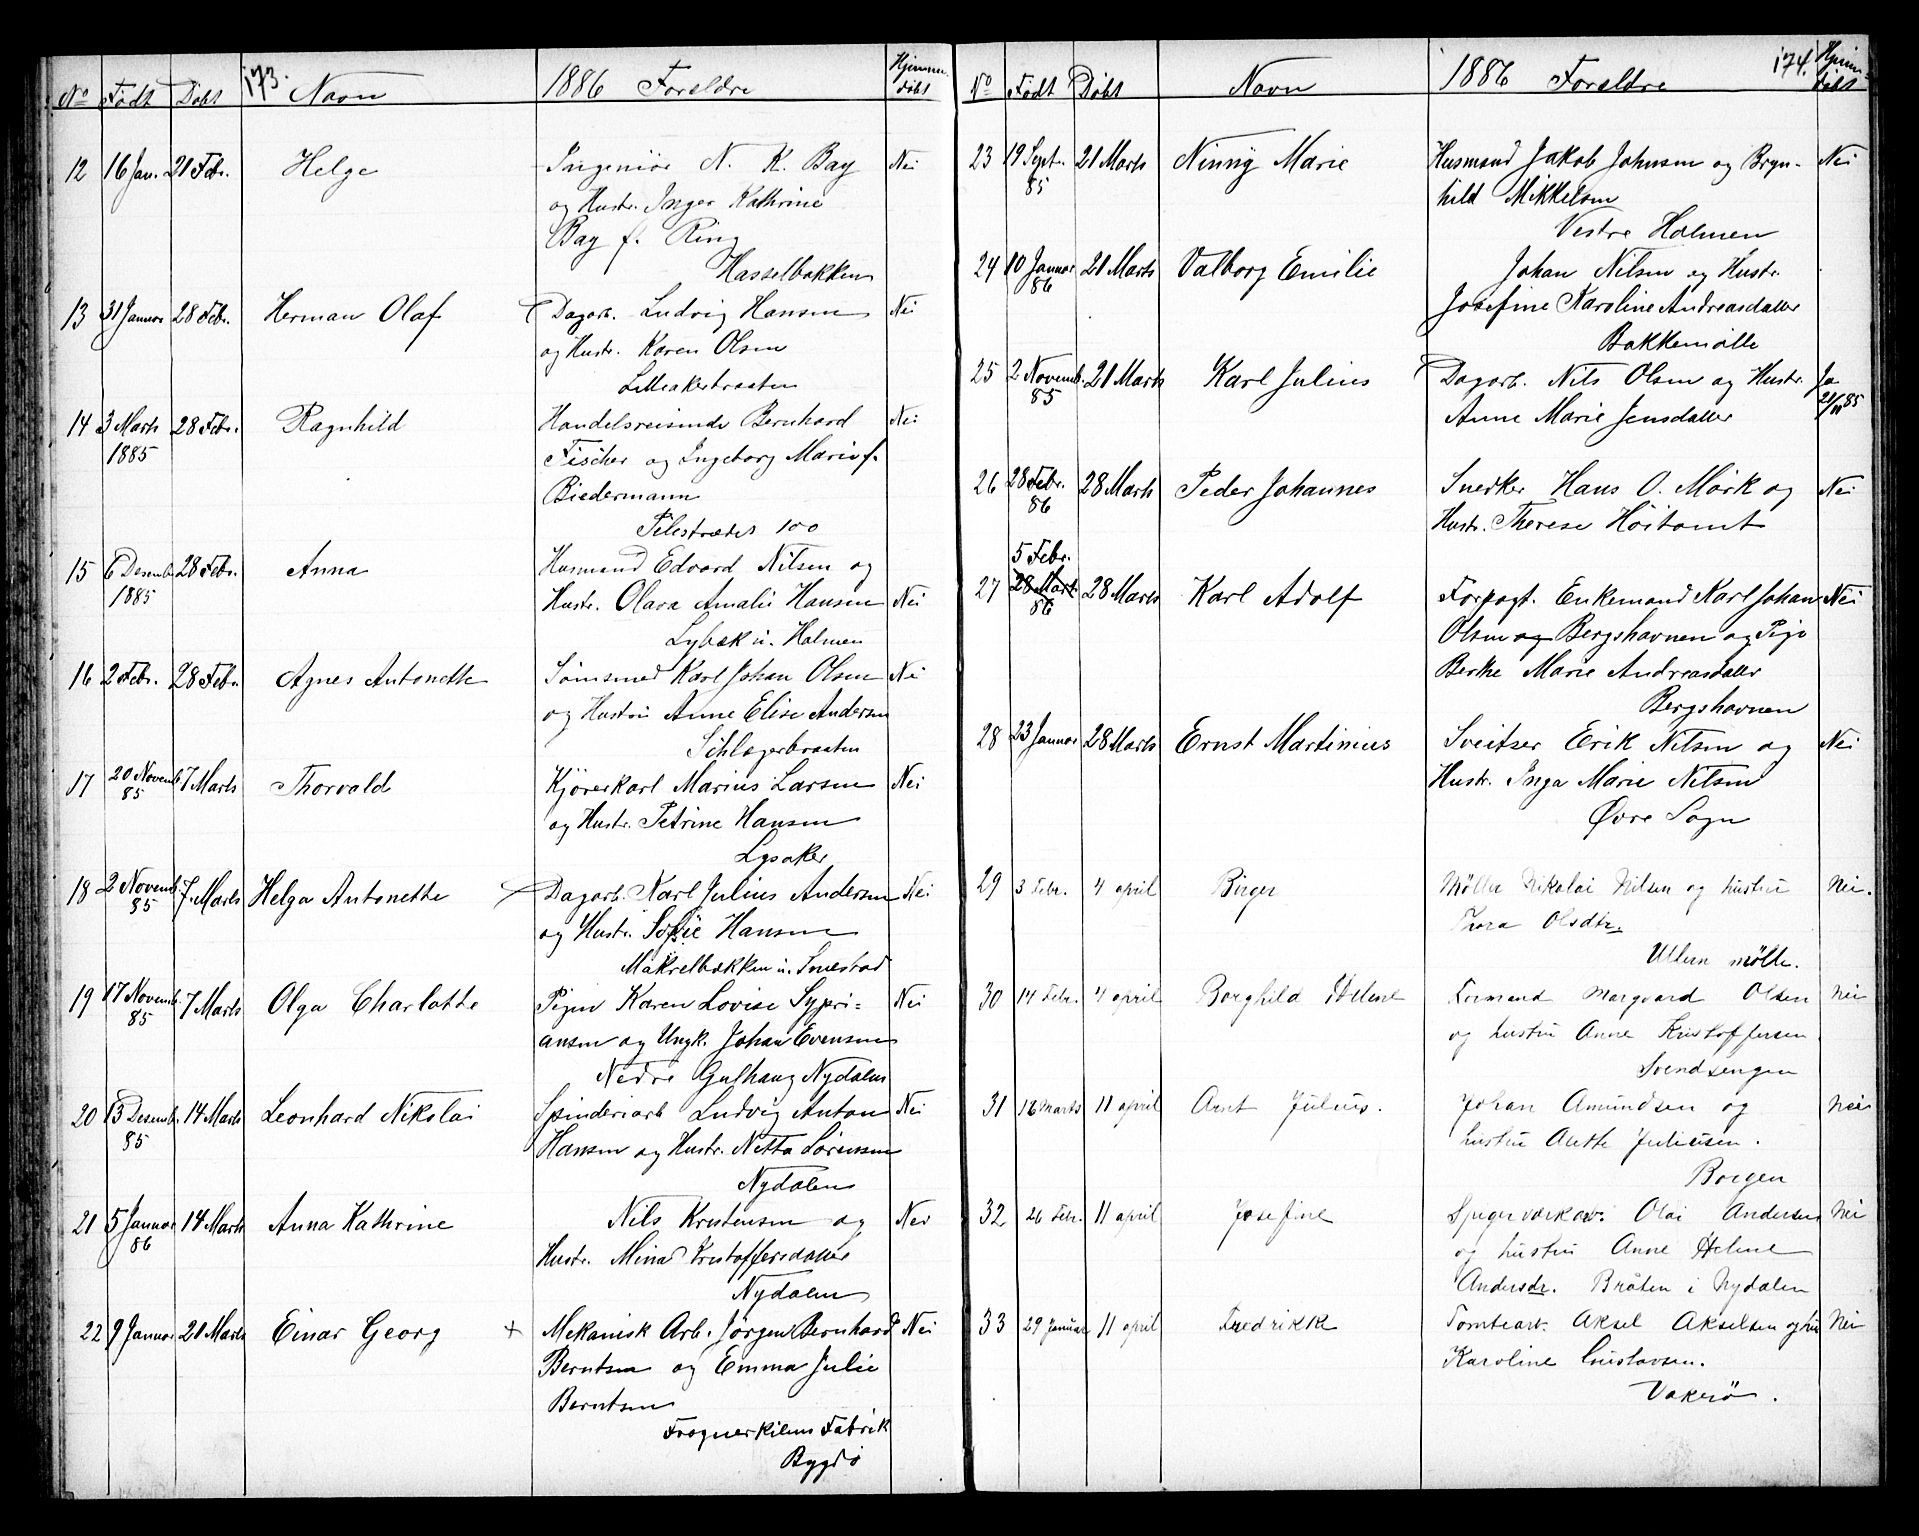 173.
No Født Døbt Navn 1886 Forældre Hjemme-
døbt
12 16 Jan. 21 Febr. Helge Ingeniør N. K. Bay Nei
og Hustr. Inger Kathrine
Bay f. Ring
Hasselbakken
13 31 Januar 28 Febr. Herman Olaf Dagarb. Ludvig Hansen Nei
og Hustr. Karen Olsen
Lilleakerbraaten
14 3 Marts 28 Febr. Ragnhild Handelsreisende Bernhard Nei
1885 Fischer og Ingeborg Marie f.
Biedermann
Pilestrædet 100
15 6 Desemb. 28 Febr. Anna Husmand Edvard Nilsen og
1885 Hustr. Olava Amalie Hansen Nei
Lybæk u. Holmen
16 2 Febr. 28 Febr. Agnes Antonette Sømsmed Karl Johan Olsen Nei
og Hustru Anne Elise Andersen
Schlagerbraaten
17 20 Novemb. 7 Marts Thorvald Kjørerkarl Marius Larsen Nei
85 og Hustr. Petrine Hansen
Lysaker
18 2 Novemb. 7 Marts Helga Antonette Dagarb. Karl Julius Andersen Nei
85 og Hustr. Sofie Hansen
Makrelbækken u. Smestad
19 17 Novemb. 7 Marts Olga Charlotte Pigen Karen Lovise Sypri- Nei
85 ansen og Ungk. Johan Evensen
Nedre Gulhaug Nydalen
20 13 Desemb. 14 Marts Leonhard Nikolai Spinderiarb Ludvig Anton Nei
85 Hansen og Hustr. Netta Sørensen
Nydalen
21 5 Januar 14 Marts Anna Kathrine Nils Kristensen og Nei
86 Hustr. Mina Kristoffersdatter
Nydalen
22 9 Januar 21 Marts Einar Georg + Mekanisk Arb. Jørgen Bernhard Nei
Berntsen og Emma Julie
Berntsen
Frognerkilens Fabrik
Bygdö
174.
No Født Døbt Navn 1886 Forældre Hjem-
døbt
23 19 Sept. 21 Marts Ninny Marie Husmand Jakob Johnsen og Bryn- Nei
85 hild Mikkelsen
Vestre Holmen
24 10 Januar 21 Marts Valborg Emilie Johan Nilsen og Hustr.
86 Josefine Karoline Andreasdatter
Bakkemølle
25 2 Novemb. 21 Marts Karl Julius Dagarb. Nils Olsen og Hustr. Ja
85 Anne Marie Jensdatter 21/11 85
26 28 Febr. 28 Marts Peder Johannes Snedker Hans O. Mörk og Nei
86 Hustr. Therese Höitomt
5 Febr.
27 28 Mart. 28 Marts Karl Adolf Forpagt. Enkemand Karl Johan Nei
86 Olsen og Bergshavnen og Pige
Berthe Marie Andreasdatter
Bergshavnen
28 23 Januar 28 Marts Ernst Martinius Sveitser Erik Nilsen og Nei
Hustr. Inga Marie Nilsen
Øvre Sogn
29 3 Febr. 4 april Birger Møller Nikolai Nilsen og hustru Nei.
Thora Olsdtr.
Ullern mølle.
30 14 Febr. 4 april Borghild Helene Formand Margvard Olsen Nei
og hustru Anne Kristoffersen
Svendsengen
31 18 marts 11 april Arnt Julius. Johan Amundsen og Nei
hustru Anette Juliusen.
Borgen
32 26 Febr. 11 april Josefine Spigerværkarb. Olai Andersen Nei
og hustru Anne Helene
Andersdr. Bråten i Nydalen
33 29 Januar 11 april Fredrikke Tomtearb. Aksel Akselsen og hu Nei
Karoline Gustavsen.
Vækerö.